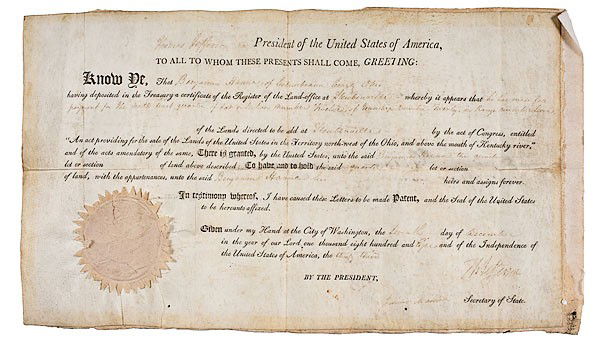 Thomas Jefferson President of the United States of America,
TO ALL TO WHOM THESE PRESENTS SHALL COME, GREETING:
Know Ye, That Benjamin of County Ohio
having deposited in the Treasury a certificate of the Register of the Land-office at Steubenville whereby it appears that he has made full
payment for the quarter of lot or section number of township number in range number
of the Lands directed to be sold at Steubenville by the act of Congress, entitled
“An act providing for the sale of the Lands of the United States in the Territory north-west of the Ohio, and above the mouth of Kentucky river,”
and of the acts amendatory of the same, There is granted, by the United States, unto the said Benjamin the quarter
lot or section of land above described: To have and to hold the said quarter lot or section
of land, with the appurtenances, unto the said heirs and assigns forever.
In testimony whereof, I have caused these Letters to be made Patent, and the Seal of the United States
to be hereunto affixed.
Given under my Hand at the City of Washington, the day of
in the year of our Lord one thousand eight hundred and and of the Independence of
the United States of America, the thirty third
Th: Jefferson
BY THE PRESIDENT,
James Madison Secretary of State.